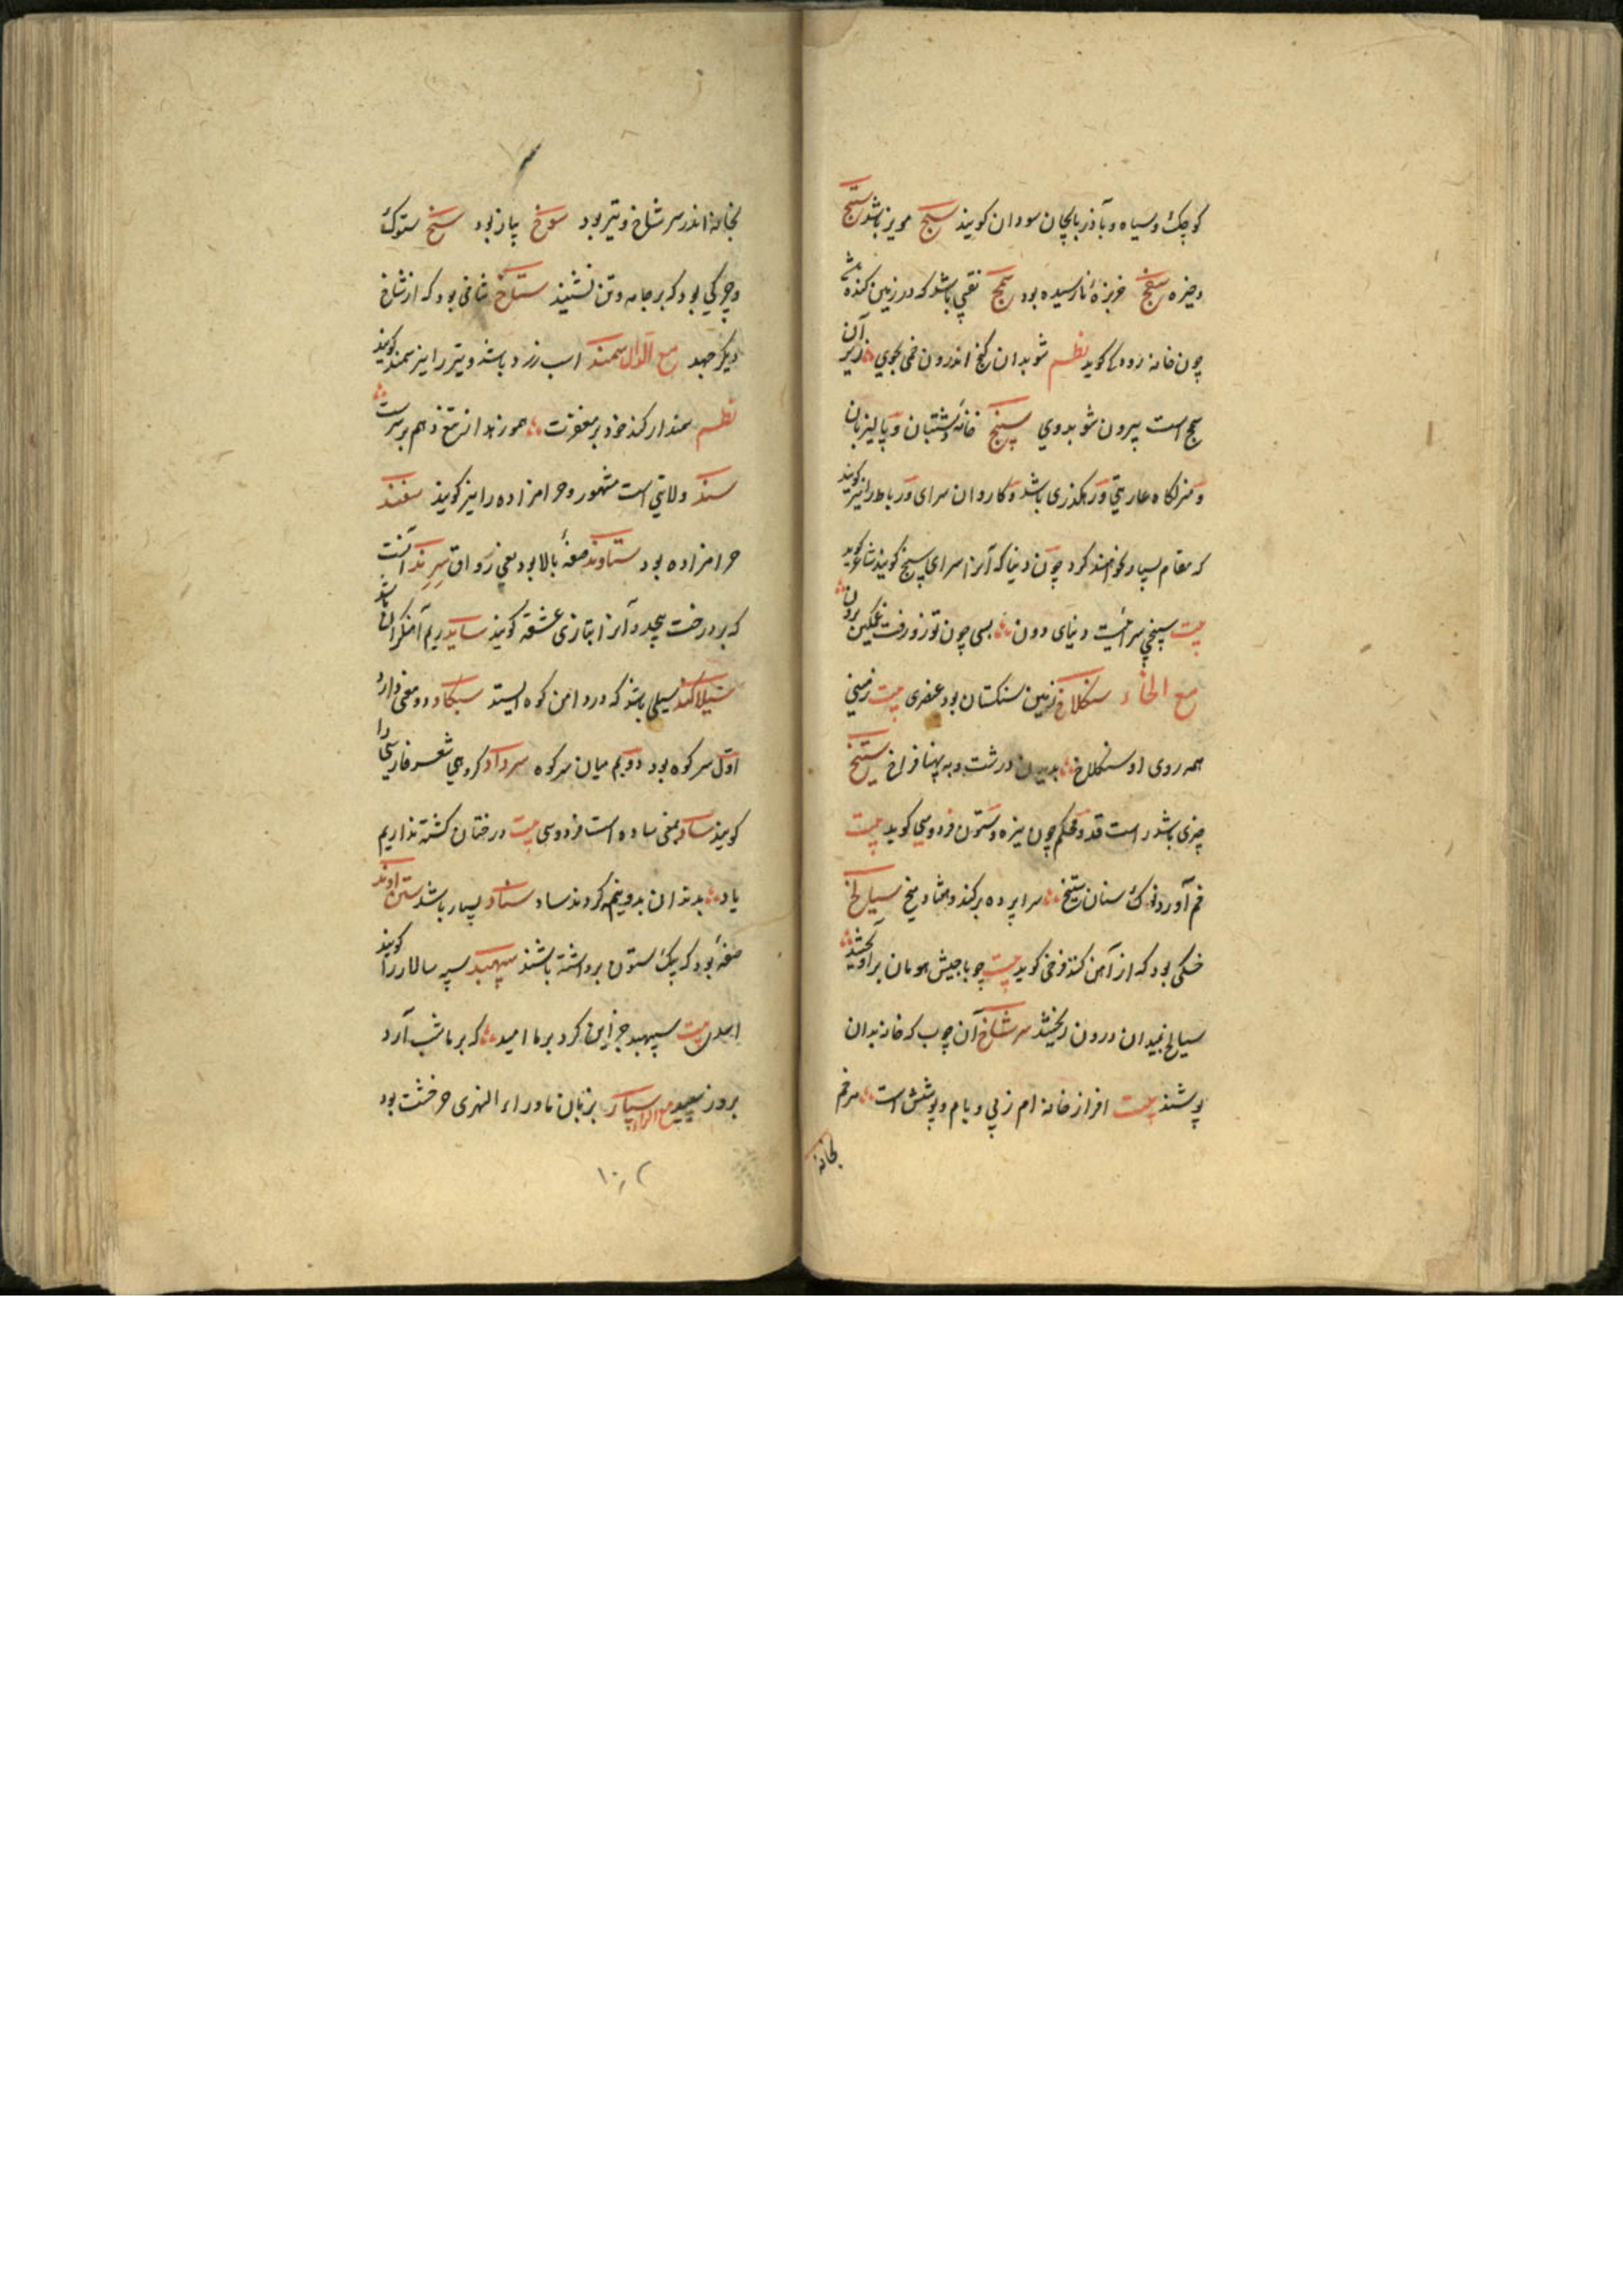 کوچک و سیاه و بآذربایجان سودان کویند سبج مویز باشد ستج
و خیزه سفج خربزهٔ نارسیده بود سمج نقبی باشد که در زمین کنده باشند
چون خانه رودکی کوید نظم شو بدان کنج اندرون خمی بجوی زیر آن
سمج است بیرون شو بدوی سپنج خانهٔ دشتبان و پالیزبان
و منزلکاه عاریتی و رهکذری باشد و کاروان سرای و رباط را نیز کویند
که مقام بسیار نخواهند کرد چون دنیا که آنرا سرای سپنج کویند شاعر کوید
بیت سپنجی سرائیست دنیای دون بسی چون تو زو رفت غمکین برون
مع الخاء سنکلاخ زمین سنکستان بود عنصری بیت زمینی
همه روی او سنکلاخ بدیدن درشت و به پهنا فراخ ستیخ
چیزی باشد راست قد و محکم چون نیزه و ستون فردوسی کوید بیت
خم آورد نوک سنان ستیخ سراپرده برکند و هفتاد میخ سیالخ
خسکی بود که از آهن کنند فرخی کوید بیت چو با جیش هومان برآویختند
سیالخ بمیدان درون ریختند سرشاخ آن چوب که خانه بدان
پوشند بیت افراز خانه ام ز پی و بام و پوشش است هرخم
بخانهٔ
بخانهٔ اندر سرشاخ و تیر بود سوخ پیاز بود سنخ ستوک
و چرکی بود که بر جامه و تن نشیند ستاخ شاخی بود که از شاخ
دیکر جهد مع الدال سمند اسب زرد باشد و تیر را نیز سمند کویند
نظم
سند ولایتی است مشهور و حرامزاده را نیز کویند سغند
حرامزاده بود ستاوند صفهٔ بالا بود یعنی رواق سرند آنست
که بر درخت پیچد و آنرا بتازی عشقه کویند ساید ریم آهنکران باشد
سیلاکند سیلی باشد که در دامن کوه ایستد سکاد دو معنی دارد
اول سر کوه بود دویم میان سر کوه سرواد کروهی شعر فارسی را
کویند ساد بمعنی ساده است فردوسی بیت درختان کشته نداریم
یاد بدندان بدو نیم کردند ساد ستاد بسیار باشد ستن اوند
صفهٔ بود که بیک ستون برداشته باشند سپهبد سپه سالار را کویند
اسدی بیت سپهبد جز این کرد بر ما امید که بر ما شب آرد
بروز سپید مع الراء سپار بزبان ماوراء النهری چرخشت بود